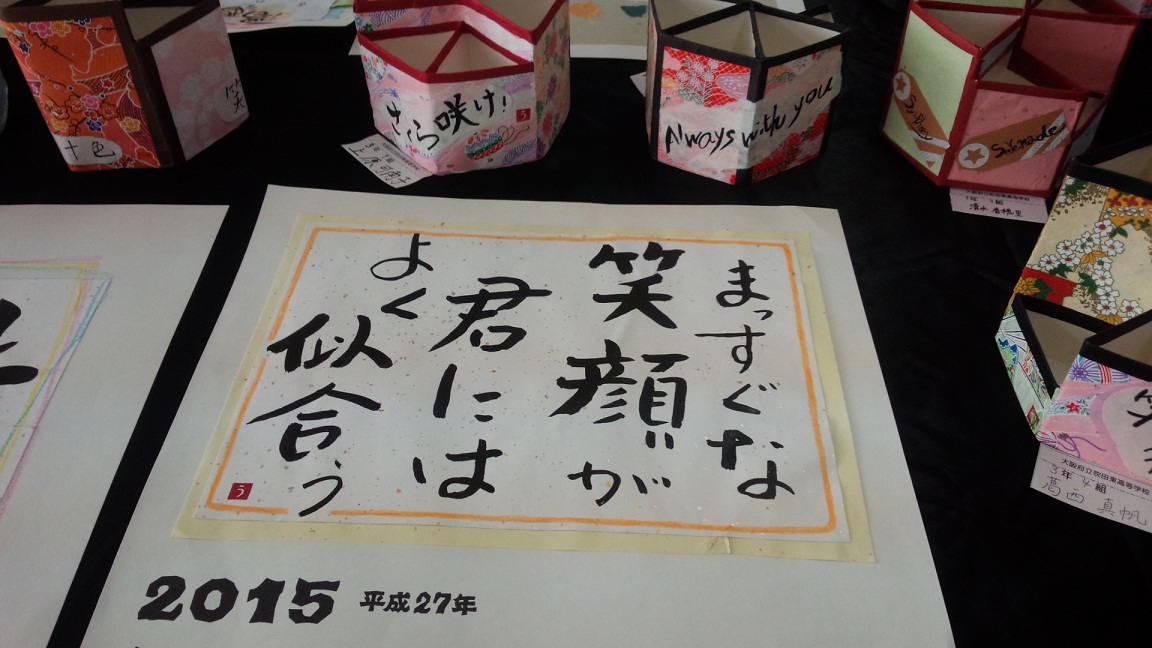 まっすぐな
笑顔が
君には
よく
似合う
う
2015 平成27年
十色
さくら咲け!
う
3年
Always with you
Smile
Sakunade
3年
清水
大阪府立吹田東高等学校
3年4組
葛西 真帆
笑